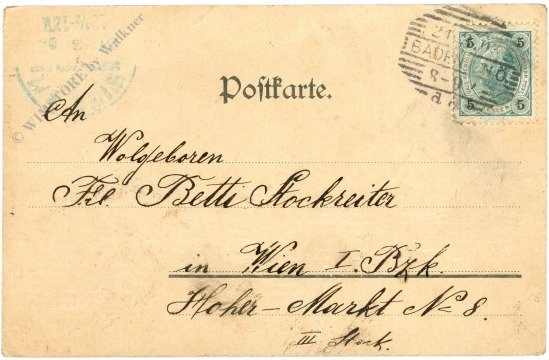 © WIENSTORE by Walkner
5 5
BADEN N.Ö.
8-9
5 5
Postkarte.
An
Wolgeboren
Frl. Betti Stockreiter
in Wien I. Bzk.
Hoher-Markt No 8.
III Stock.